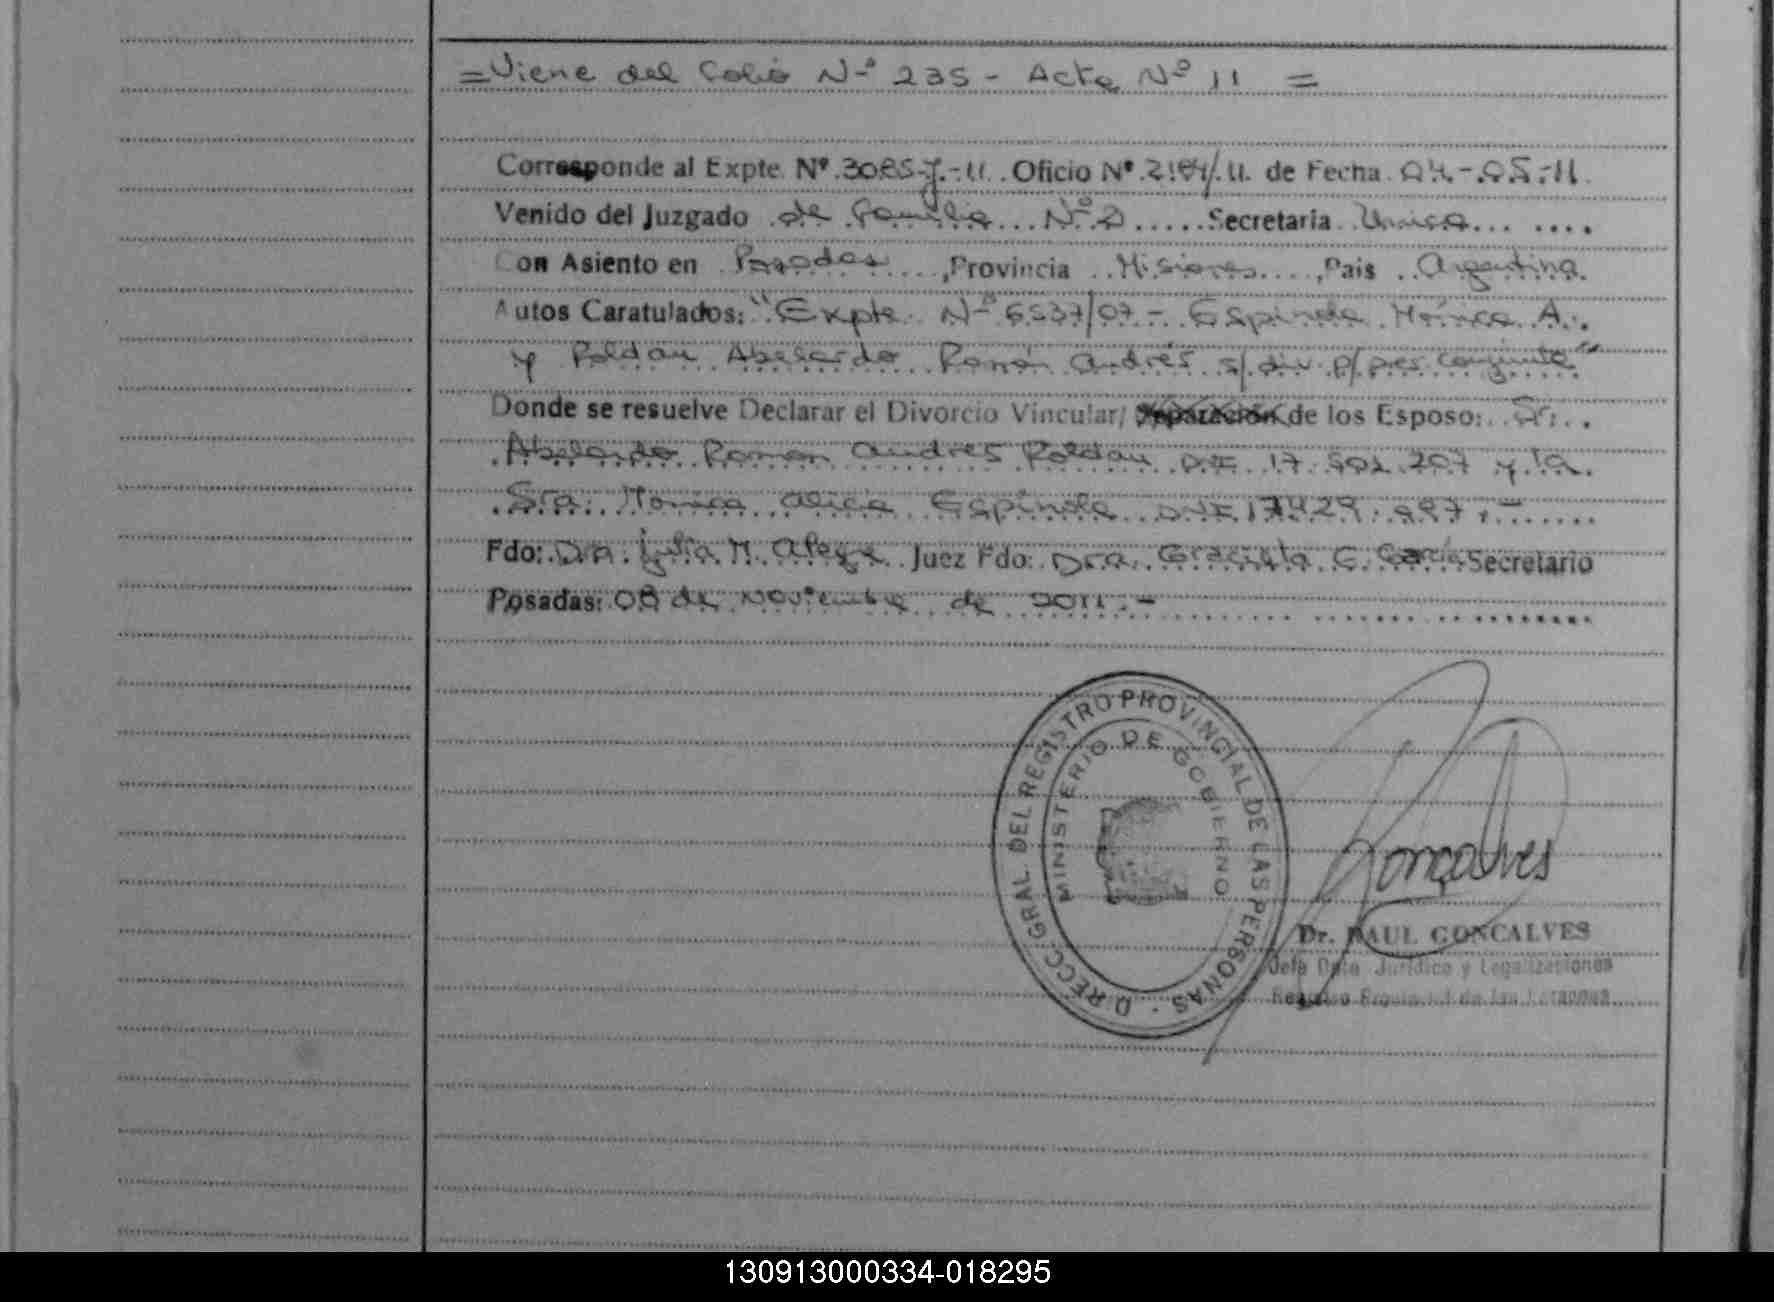 = Viene del Folio Nº 235 - Acta Nº 11 =
Corresponde al Expte. Nº 3085-J-11. Oficio Nº /11. de Fecha 04-05-11.
Venido del Juzgado de Familia Nº 2 Secretaria Unica
Con Asiento en Posadas, Provincia Misiones, Pais Argentina.
Autos Caratulados: "Expte. Nº 6537/07 - Espinola Mónica A.
y Roldau Abelardo Román Andrés s/div. p/pres. conjunta"
Donde se resuelve Declarar el Divorcio Vincular/ Separación de los Esposo: Sr.
Abelardo Roman Andres Roldau DNI 17. 207 y la
Sra. Monica Alicia Espínola DNI 17429. .-
Fdo: Dra. Julia M. Alegre Juez Fdo: Dra. Graciela C. García Secretario
Posadas: 08 de noviembre de 2011.-
DIRECC. GRAL. DEL REGISTRO PROVINCIAL DE LAS PERSONAS
MINISTERIO DE GOBIERNO
Goncalves
Dr. RAUL GONCALVES
Jefe Dpto. Jurídico y Legalizaciones
Registro Provincial de las Personas
130913000334-018295